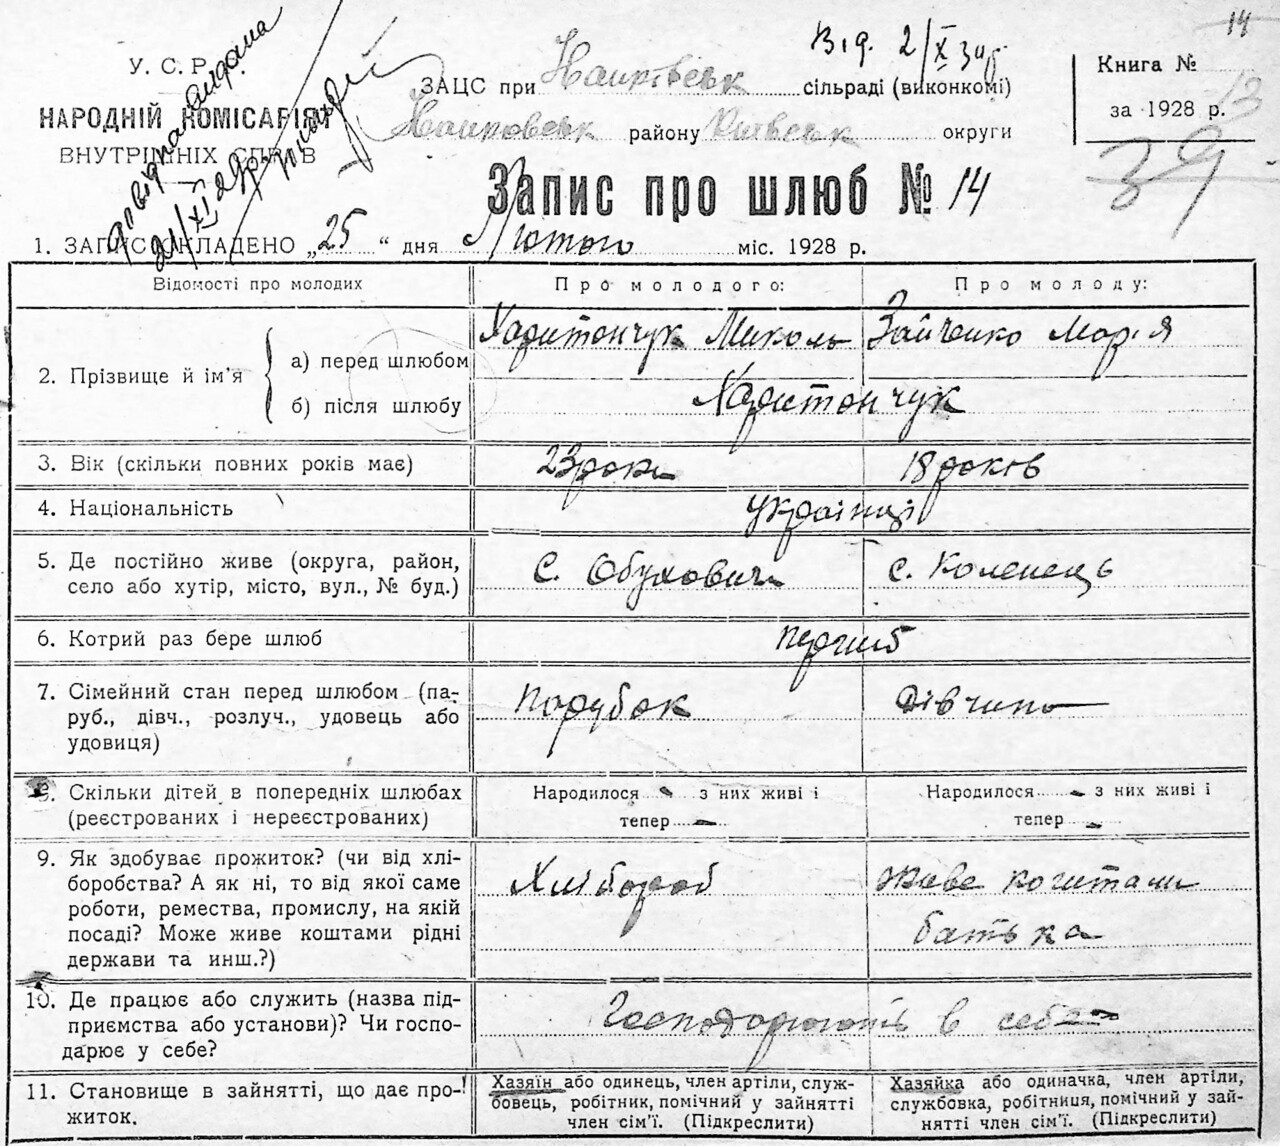 14
У. С. Р. Р.
НАРОДНІЙ КОМІСАРІЯТ
ВНУТРІШНІХ СПРАВ
Відпис видана
21/XI 29р.
Від. 2/X
ЗАЦС при сільраді (виконкомі)
району Київськ округи
Книга № 13
за 1928 р.
39
Запис про шлюб № 14
1. ЗАПИС СКЛАДЕНО „25“ дня Лютого міс. 1928 р.
Відомості про молодих
Про молодого:
Про молоду:
2. Прізвище й ім'я
а) перед шлюбом
Харитончук Миколь
Зайченко Марія
б) після шлюбу
Харитончук
3. Вік (скільки повних років має)
23 роки
18 років
4. Національність
Українці
5. Де постійно живе (округа, район,
село або хутір, місто, вул., № буд.)
с. Обуховичи
с. Коленець
6. Котрий раз бере шлюб
перший
7. Сімейний стан перед шлюбом (па-
руб., дівч., розлуч., удовець або
удовиця)
Парубок
Дівчина
8. Скільки дітей в попередніх шлюбах
(реєстрованих і нереєстрованих)
Народилося - з них живі і
тепер -
Народилося - з них живі і
тепер -
9. Як здобуває прожиток? (чи від хлі-
боробства? А як ні, то від якої саме
роботи, ремества, промислу, на якій
посаді? Може живе коштами рідні
держави та инш.?)
Хлібороб
Живе коштами
батька
10. Де працює або служить (назва під-
приємства або установи)? Чи госпо-
дарює у себе?
Господарюють в себе
11. Становище в зайнятті, що дає про-
житок.
Хазяїн або одинець, член артіли, служ-
бовець, робітник, помічний у зайнятті
член сім'ї. (Підкреслити)
Хазяйка або одиначка, член артіли,
службовка, робітниця, помічний у зай-
нятті член сім'ї. (Підкреслити)